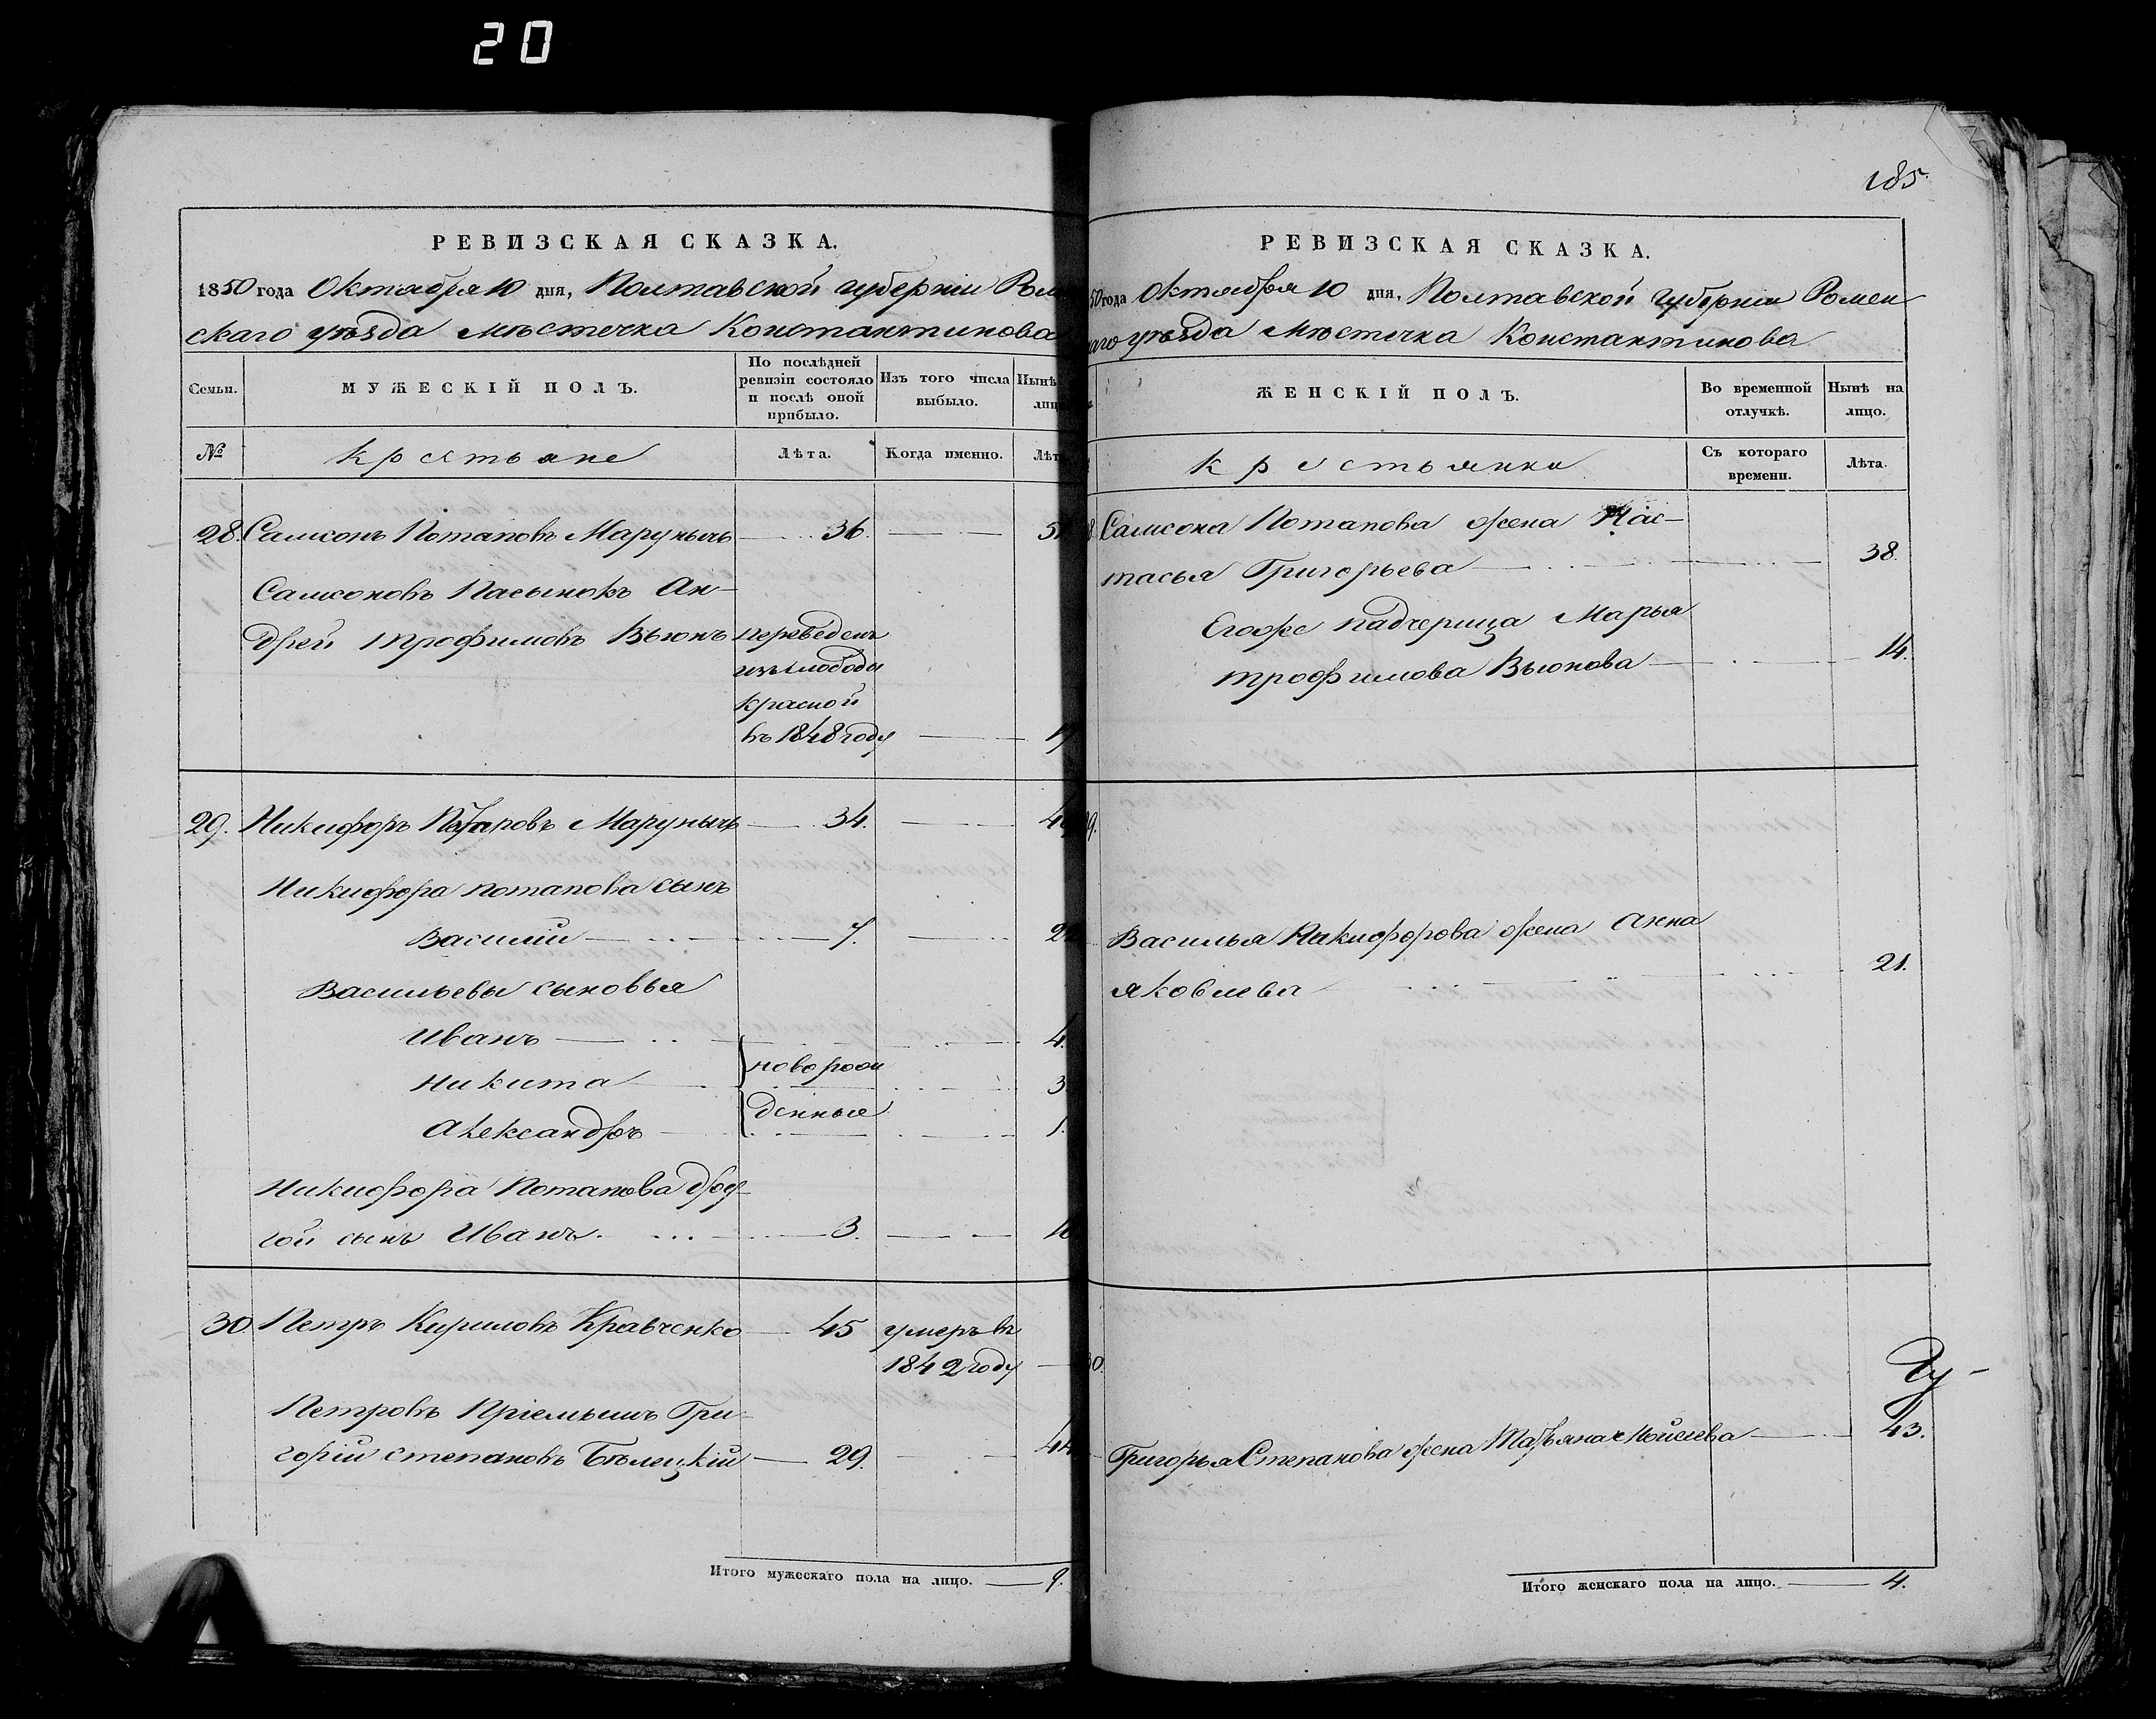 20
РЕВИЗСКАЯ СКАЗКА.
1850 года Октября 10 дня, Полтавской губерніи Ром
скаго уѣзда Мѣстечка Константинова
Семьи. МУЖЕСКІЙ ПОЛЪ. По послѣдней ревизіи состояло и послѣ оной прибыло. Изъ того числа выбыло. Нынѣ
№ Крестьяне Лѣта. Когда именно. Лѣт
28. Самсонъ Потаповъ Маруничъ 36.
Самсоновъ Пасынокъ Ан-
дрей Трофимовъ Вьюнъ переведенъ
изъ слободы
Красной
въ 1848 году
29. Никифоръ Потаповъ Маруничъ 34.
Никифора Потапова сынъ
Василій 7.
Васильевы сыновья
Иванъ 4.
Никита новорож 3
Александръ денные 1.
Никифора Потапова дру-
гой сынъ Иванъ. 3. 18
30. Петръ Кириловъ Кравченко 45 умеръ въ
1842 году
Петровъ Пріемышъ Гри-
горій Степановъ Бѣлецкій 29. 44
Итого мужескаго пола на лицо. 9.
185.
РЕВИЗСКАЯ СКАЗКА.
50 года Октября 10 дня, Полтавской губерніи Ромен
аго уѣзда Мѣстечка Константинова
ЖЕНСКІЙ ПОЛЪ. Во временной отлучкѣ. Нынѣ на лицо.
Крестьянки Съ котораго времени. Лѣта.
8. Самсона Потапова жена Нас-
тасья Григорьева 38.
Егоже падчерица Марья
Трофимова Вьюнова 14.
9.
Василья Никифорова жена Анна
Яковлева 21.
30.
Григорья Степанова жена Татьяна Мойсеева 43.
Итого женскаго пола на лицо. 4.